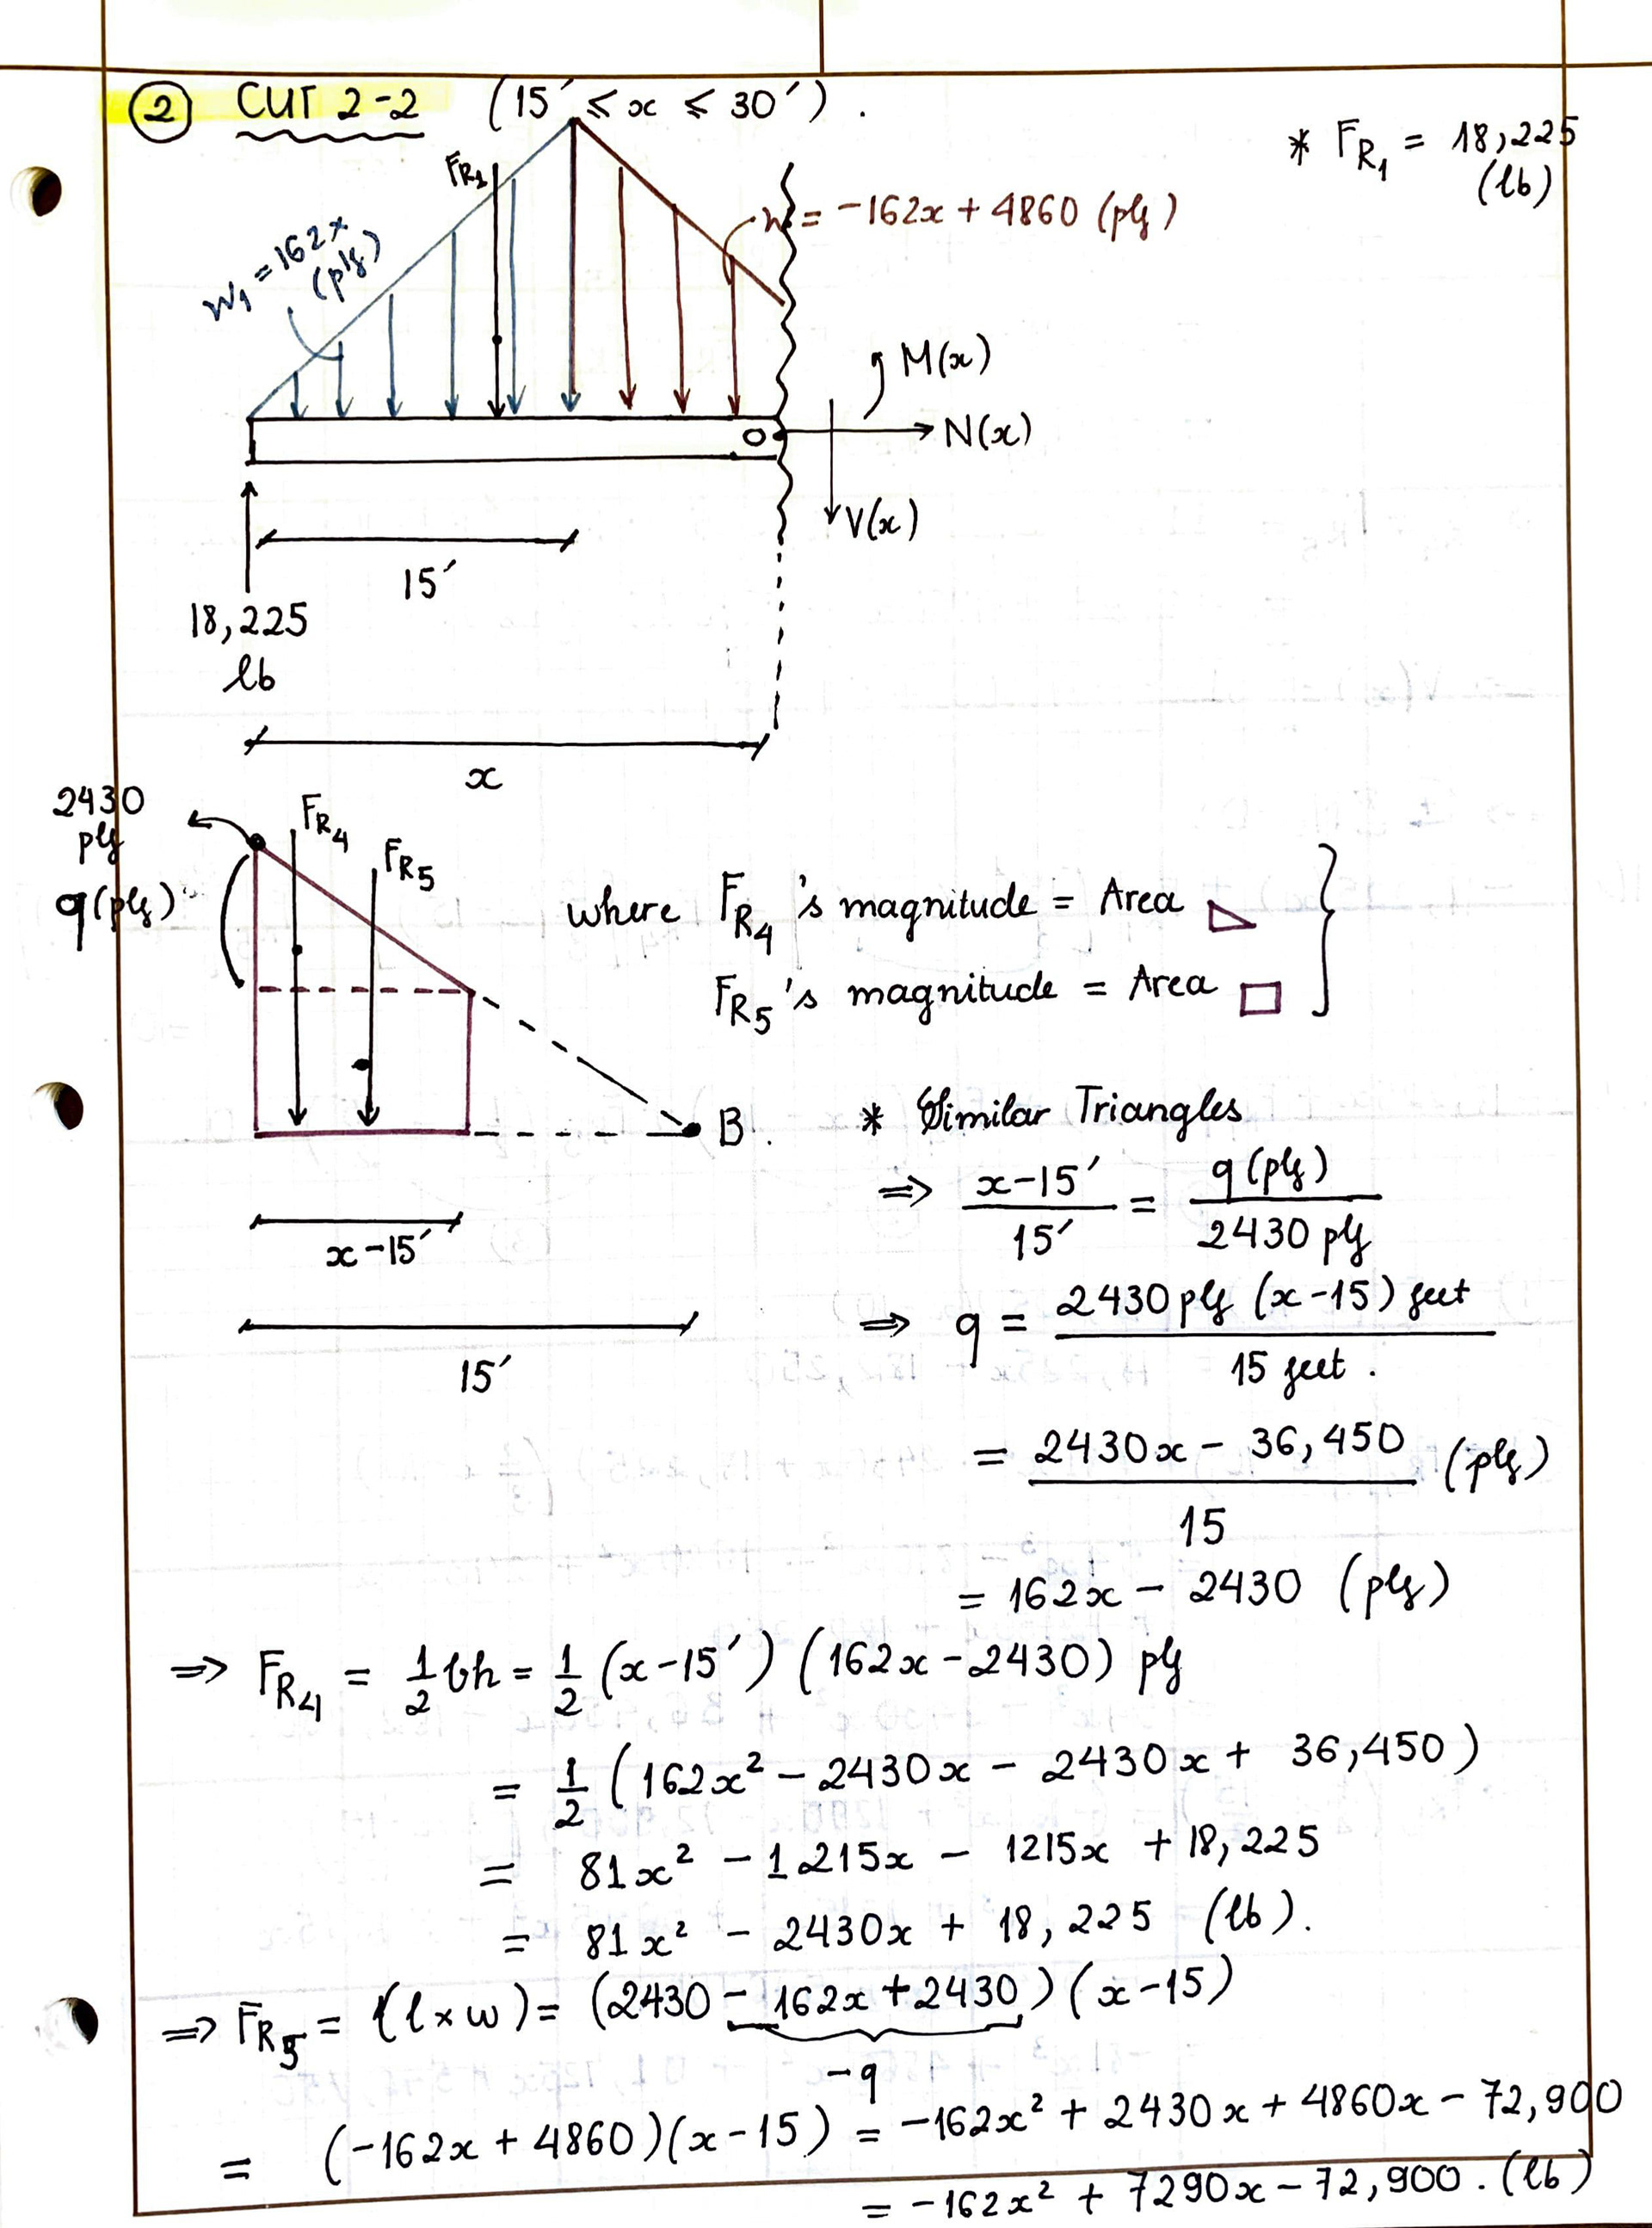 ② CUT 2-2 (15′ ≤ x ≤ 30′).
* FR1 = 18,225
(lb)
FR1
w = -162x + 4860 (plf)
w1 = 162x
(plf)
M(x)
O
N(x)
V(x)
15′
18,225
lb
x
2430
plf
FR4
FR5
q(plf)
where FR4's magnitude = Area ◺
FR5's magnitude = Area □
B.
* Similar Triangles
⇒ x-15′ / 15′ = q (plf) / 2430 plf
x-15′
⇒ q = 2430 plf (x-15) feet / 15 feet.
15′
= 2430x - 36,450 / 15 (plf)
= 162x - 2430 (plf)
⇒ FR4 = 1/2 bh = 1/2 (x-15′) (162x-2430) plf
= 1/2 (162x² - 2430x - 2430x + 36,450)
= 81x² - 1215x - 1215x + 18,225
= 81x² - 2430x + 18,225 (lb).
⇒ FR5 = (l × w) = (2430 - 162x + 2430) (x-15)
-q
= (-162x + 4860)(x-15) = -162x² + 2430x + 4860x - 72,900
= -162x² + 7290x - 72,900. (lb)